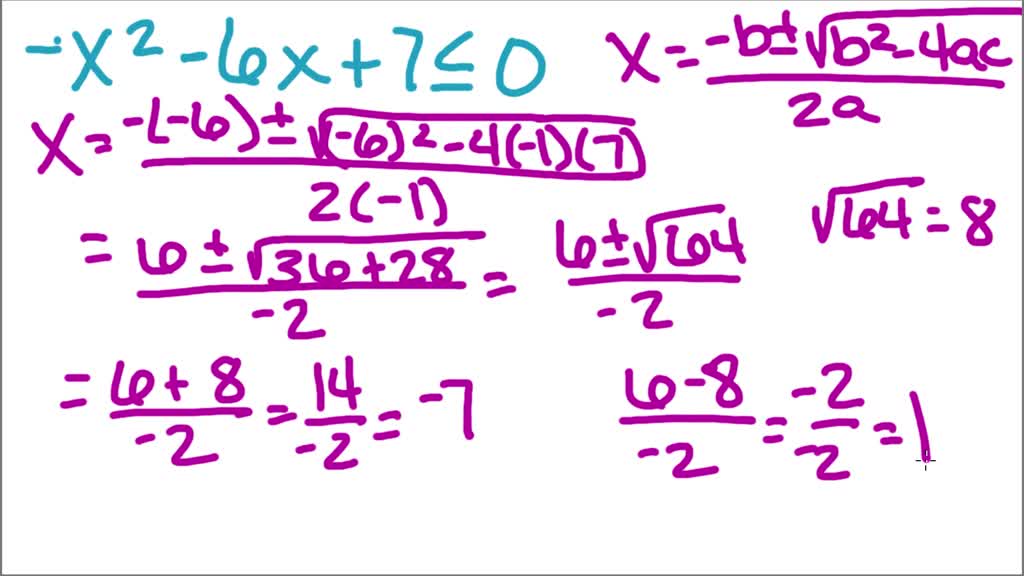 -x² - 6x + 7 ≤ 0
x = (-b ± √(b² - 4ac)) / 2a
x = (-(-6) ± √((-6)² - 4(-1)(7))) / 2(-1)
= (6 ± √(36 + 28)) / -2 = (6 ± √64) / -2
√64 = 8
= (6 + 8) / -2 = 14 / -2 = -7
(6 - 8) / -2 = -2 / -2 = 1